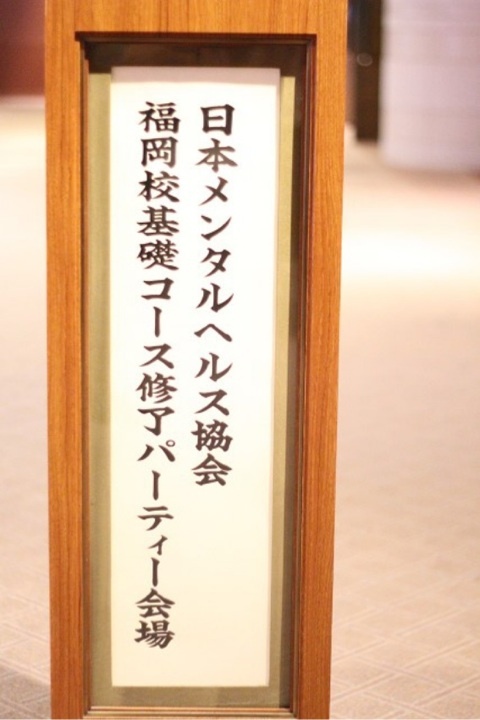 日本メンタルヘルス協会
福岡校基礎コース修了パーティー会場